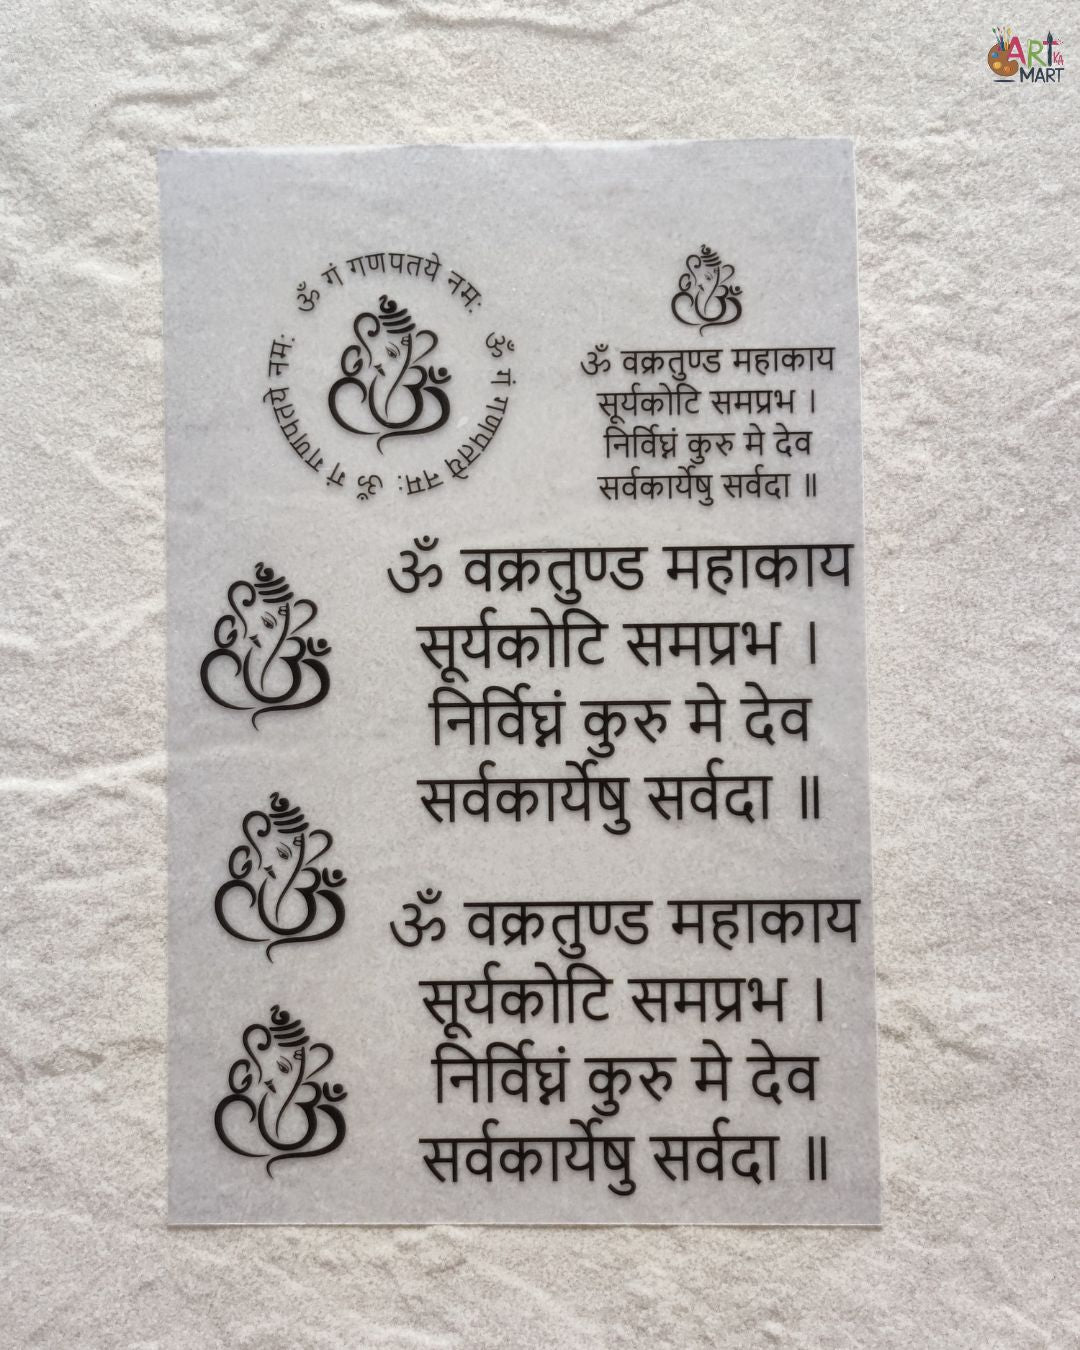 ART KA MART
ॐ गं गणपतये नमः ॐ गं गणपतये नमः ॐ गं गणपतये नमः
ॐ वक्रतुण्ड महाकाय
सूर्यकोटि समप्रभ ।
निर्विघ्नं कुरु मे देव
सर्वकार्येषु सर्वदा ॥
ॐ वक्रतुण्ड महाकाय
सूर्यकोटि समप्रभ ।
निर्विघ्नं कुरु मे देव
सर्वकार्येषु सर्वदा ॥
ॐ वक्रतुण्ड महाकाय
सूर्यकोटि समप्रभ ।
निर्विघ्नं कुरु मे देव
सर्वकार्येषु सर्वदा ॥